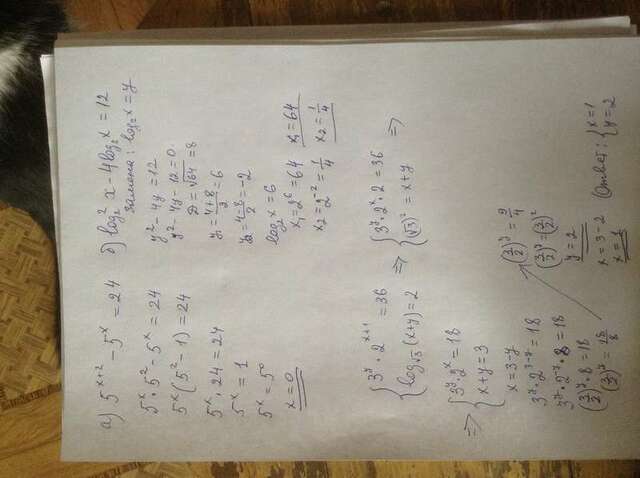 а) 5^(x+2) - 5^x = 24
5^x · 5^2 - 5^x = 24
5^x (5^2 - 1) = 24
5^x · 24 = 24
5^x = 1
5^x = 5^0
x = 0
б) log₂² x - 4log₂x = 12
замена: log₂x = y
y² - 4y = 12
y² - 4y - 12 = 0
D = √64 = 8
y₁ = (4+8)/2 = 6
y₂ = (4-8)/2 = -2
log₂x = 6
x₁ = 2^6 = 64 x₁ = 64
x₂ = 2^(-2) = 1/4 x₂ = 1/4
{ 3^y · 2^(x+1) = 36
log_√3 (x+y) = 2
⇒ { 3^y · 2^x · 2 = 36
(√3)² = x+y ⇒
⇒ { 3^y · 2^x = 18
x + y = 3
x = 3 - y
3^y · 2^(3-y) = 18
3^y · 2^(-y) · 8 = 18
(3/2)^y · 8 = 18
(3/2)^y = 18/8
(3/2)^y = 9/4
(3/2)^y = (3/2)^2
y = 2
x = 3 - 2
x = 1
Ответ: { x = 1
y = 2